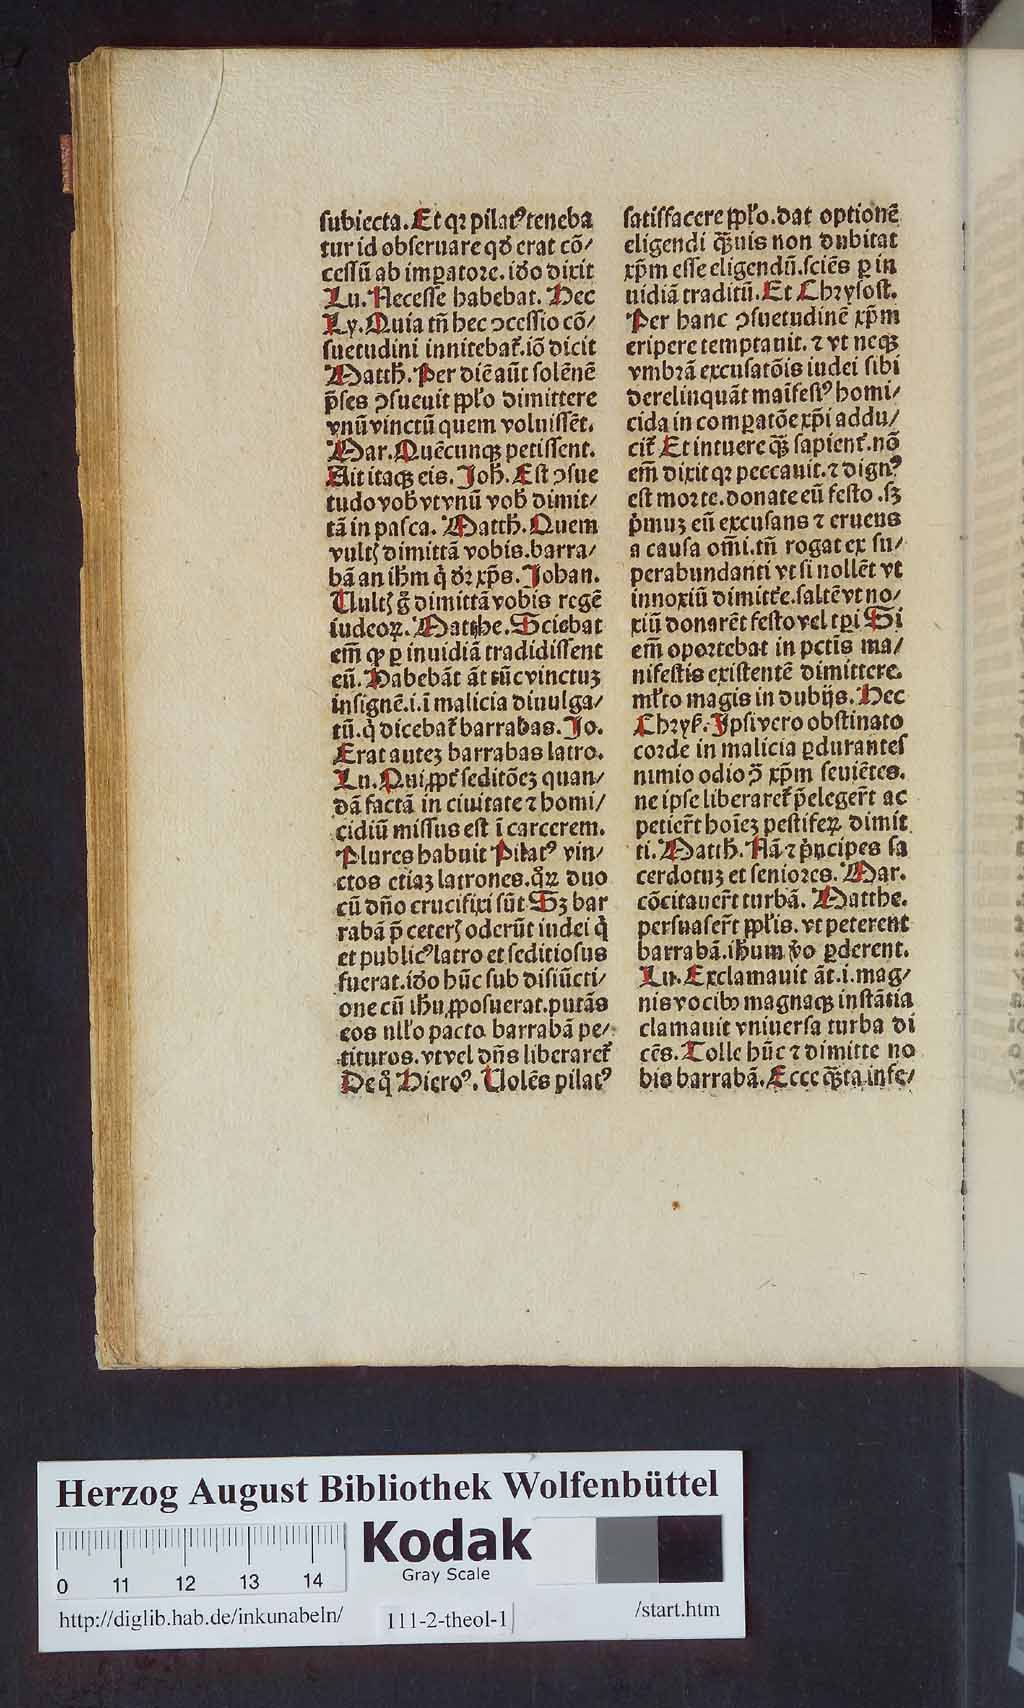 subiecta. Et qꝛ pilatꝰ teneba
tur id obseruare qđ erat cō⸗
cessū ab imꝑatore. iđo dixit
Lu. Necesse habebat. Hec
Ly. Quia tñ hec ↄcessio cō⸗
suetudini innitebat᷑. iō dicit
Matth̄. Per diē aūt solēnē
p̄ses ↄsueuit pp̄lo dimittere
vnū vinctū quem voluissēt.
Mar. Quēcunqꝫ petissent.
Ait itaqꝫ eis. Joh̄. Est ↄsue
tudo vob̄ vt vnū vob̄ dimit⸗
tā in pasca. Matth̄. Quem
vultꝭ dimittā vobis. barra⸗
bā an ih̄m q̇ đꝛ xp̄s. Johan.
Uultꝭ g̊ dimittā vobis regē
iudeoꝝ. Matthe. Sciebat
em̄ ꝙ ꝑ inuidiā tradidissent
eū. Habebāt āt tūc vinctuꝫ
insignē .i. ī malicia diuulga⸗
tū. q̇ dicebat᷑ barrabas. Jo.
Erat auteꝫ barrabas latro.
Lu. Qui ꝓpt̄ seditōeꝫ quan⸗
dā factā in ciuitate ⁊ homi⸗
cidiū missus est ī carcerem.
Plures habuit Pilatꝰ vin⸗
ctos etiaꝫ latrones. q̊ꝝ duo
cū dño crucifixi sūt Sꝫ bar
rabā p̄ ceterꝭ oderūt iudei q̇
et publicꝰ latro et seditiosus
fuerat. iđo hūc sub disiūcti⸗
one cū ih̄u ꝓposuerat. putās
eos nullo pacto barrabā pe⸗
tituros. vt vel dñs liberaret᷑
De q̊ Hieroꝰ. Uolēs pilatꝰ
satisfacere pp̄lo. dat optionē
eligendi q̄ꝫuis non dubitat
xp̄m esse eligendū. sciēs ꝑ in
uidiā traditū. Et Chrysost.
Per hanc ↄsuetudinē xp̄m
eripere temptauit. ⁊ vt neqꝫ
vmbrā excusatōis iudei sibi
derelinquāt maīfestꝰ homi⸗
cida in comꝑatōe xp̄i addu⸗
cit᷑ Et intuere q̄ꝫ sapient᷑. nō
em̄ dixit qꝛ peccauit. ⁊ dignꝰ
est morte. donate eū festo. sꝫ
p̊muꝫ eū excusans ⁊ eruens
a causa om̄i. tñ rogat ex su⸗
perabundanti vt si nollēt vt
innoxiū dimitt̄e. saltē vt no⸗
xiū donarēt festo vel tꝑi Si
em̄ oportebat in pctīs ma⸗
nifestis existentē dimittere.
ml̄to magis in dubijs. Hec
Chrys̄. Ipsi vero obstinato
corde in malicia ꝑdurantes
nimio odio ↄ̄ xp̄m seuiētes.
ne ipse liberaret᷑ p̄elegerr̄t ac
petier̄t hoīeꝫ pestiferꝝ dimit
ti. Matth̄. Nā ⁊ p̊ncipes sa
cerdotuꝫ et seniores. Mar.
cōcitauer̄t turbā. Matthe.
persuaser̄t pp̄lis. vt peterent
barrabā. ih̄um v̊o ꝑderent.
Lu. Exclamauit āt .i. mag⸗
nis vocibꝰ magnaqꝫ instātia
clamauit vniuersa turba di
cēs. Tolle hūc ⁊ dimitte no
bis barrabā. Ecce q̄ꝫta infe⸗
Herzog August Bibliothek Wolfenbüttel
Kodak
Gray Scale
0 11 12 13 14
http://diglib.hab.de/inkunabeln/
111-2-theol-1
/start.htm